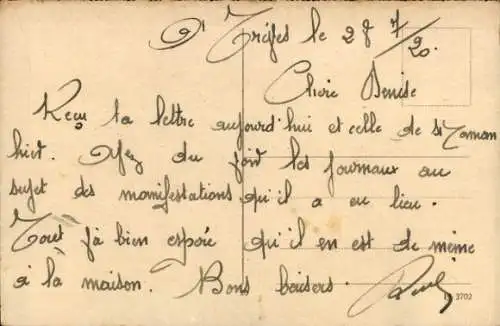 Trèfes le 28 7/20.
Chère Denise
Reçu ta lettre aujourd'hui et celle de Maman
hier. du font les journaux au
sujet des manifestations qu'il a eu lieu.
Tout jà bien esporé qu'il en est de même
à la maison. Bons baisers. Paul
3702